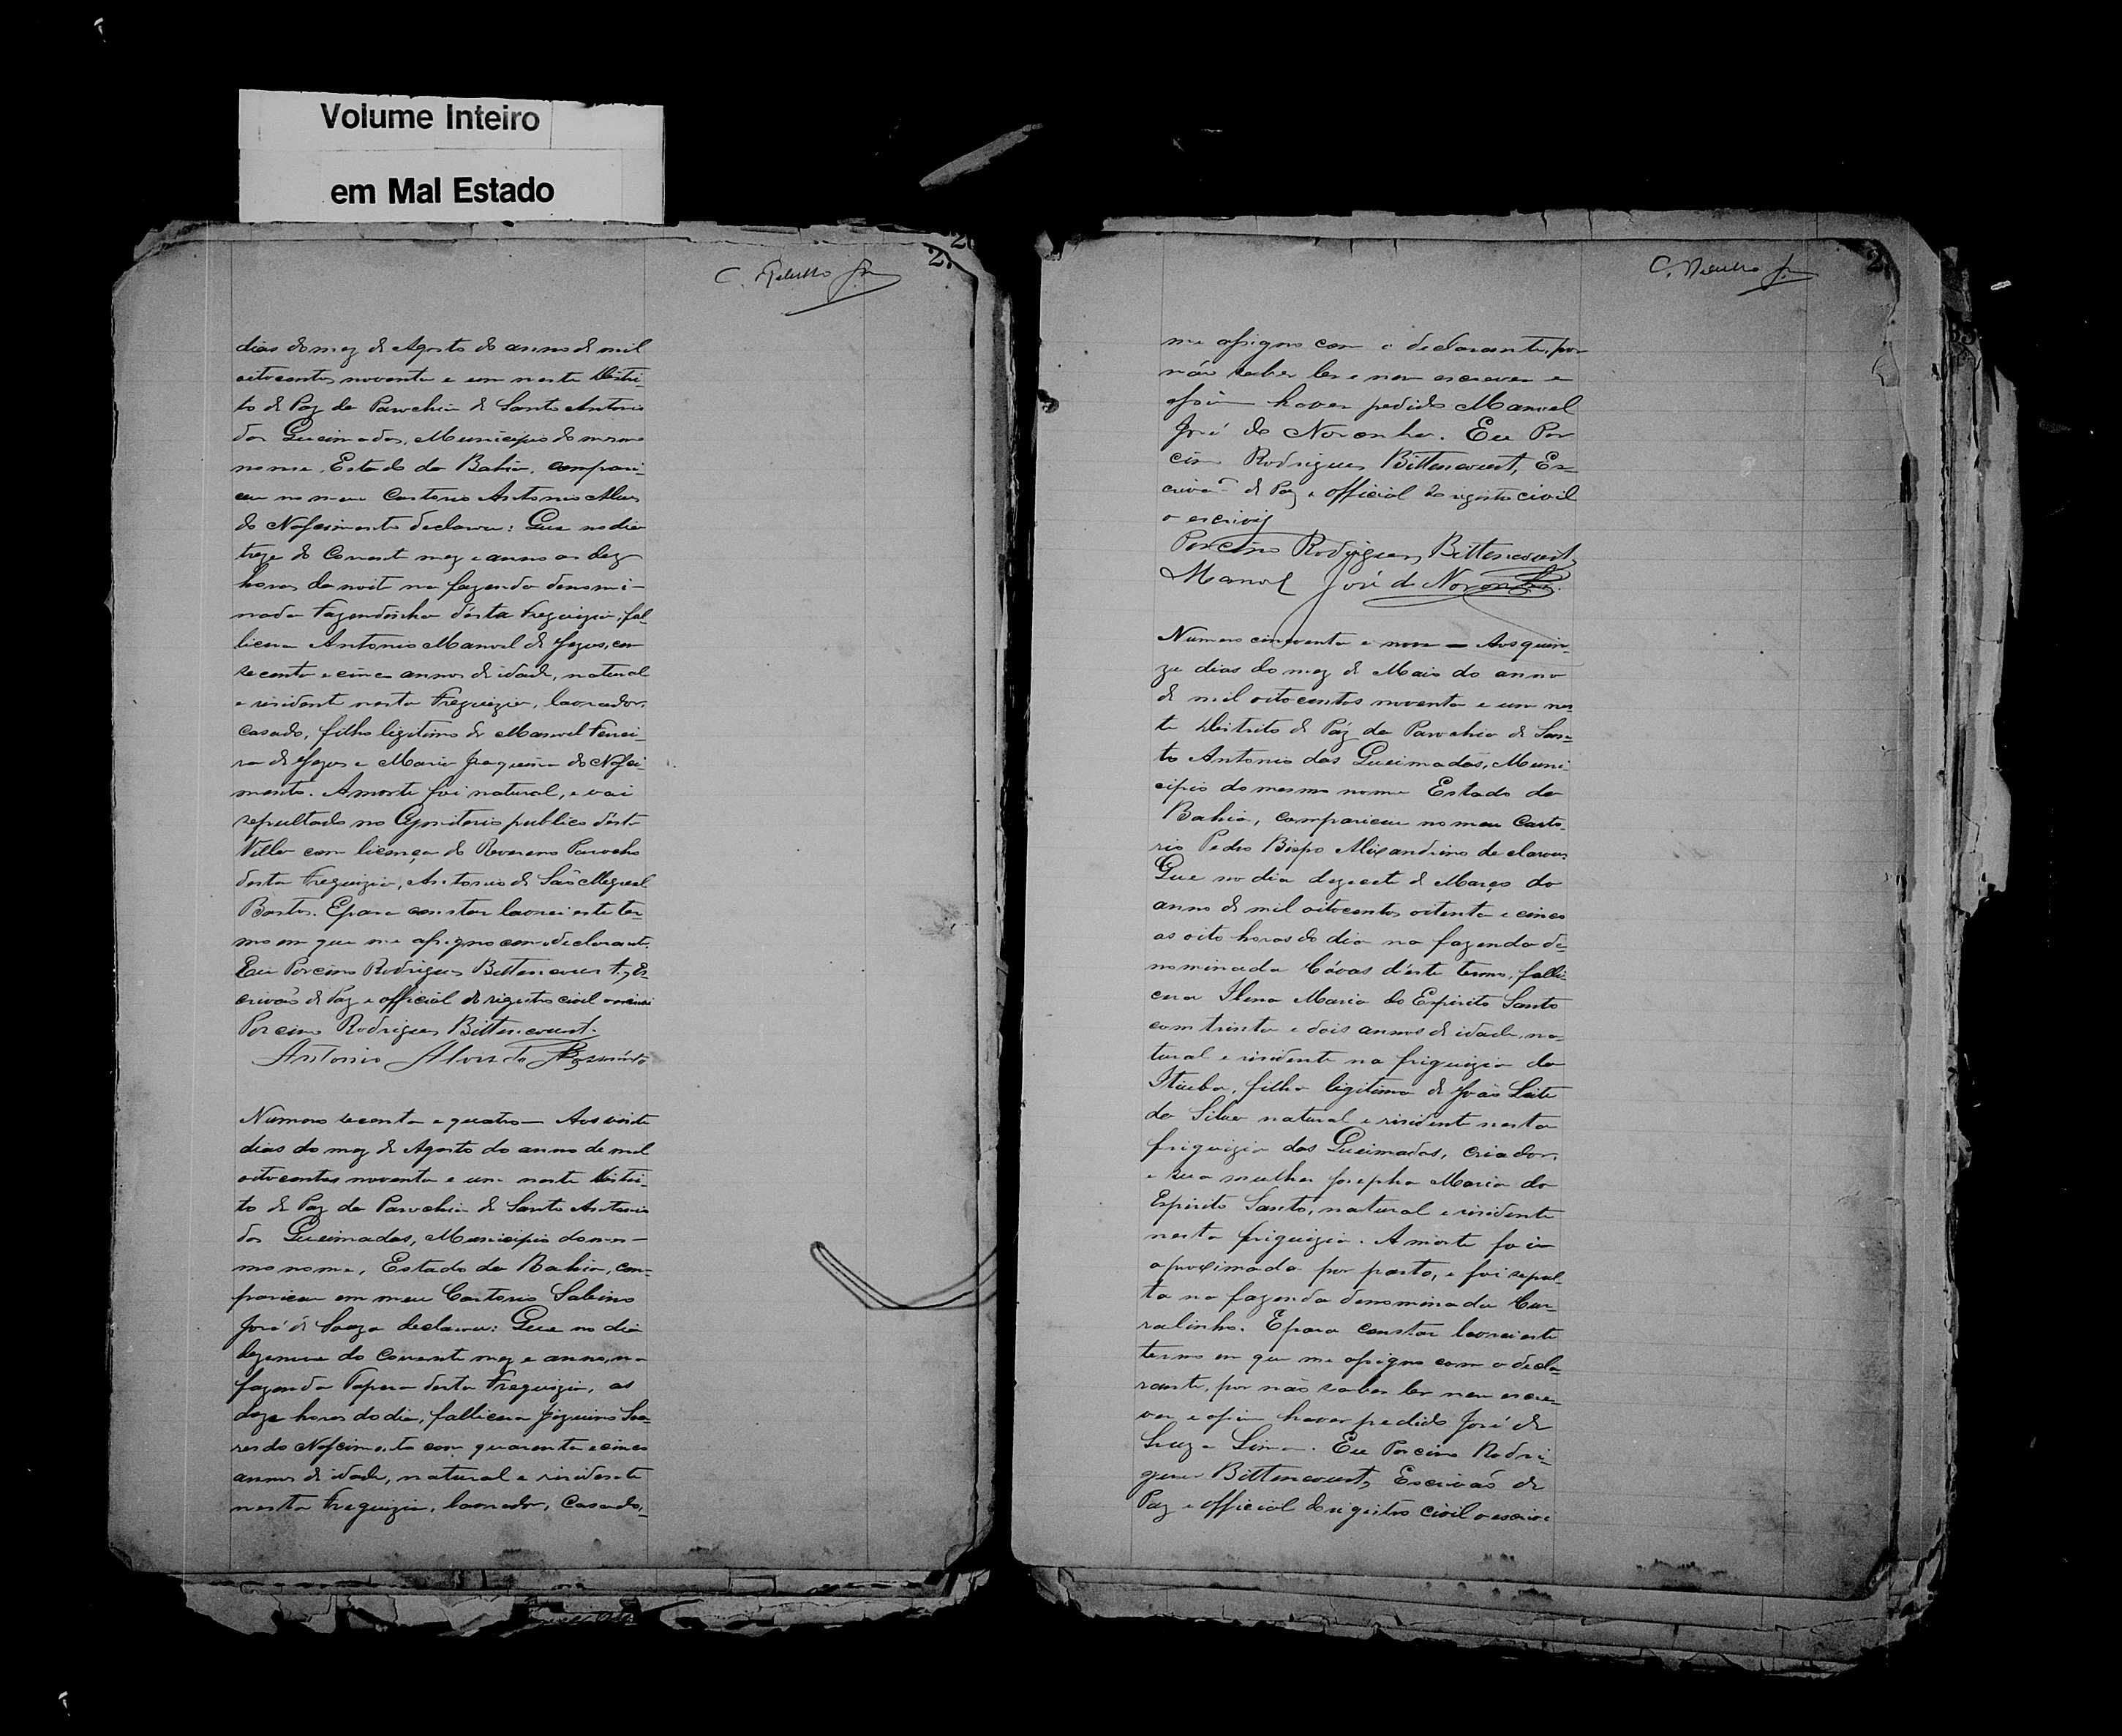 Volume Inteiro
em Mal Estado
2
C. Rebello Jr
dias do mez de Agosto do anno de mil
oitocentos noventa e um nesta Distri-
to de Paz da Parochia de Santo Antonio
das Queimadas, Municipio do mesmo
nome, Estado da Bahia, compari-
ceu no meu Cartorio Antonio Alves
do Nascimento declarou: Que no dia
treze do Corrente mez e anno as dez
horas da noite na fazenda denomi-
nada Fazendinha désta Freguizia, fal-
licera Antonio Manoel de Jezus, com
secenta e cinco annos de idade, natural
e risidente nesta Freguizia, lavrador,
casado, filho ligitimo de Manoel Ferrei-
ra de Jezus e Maria Joaquina do Nasci-
mento. A morte foi natural, e vai
sepultado no Cymiterio publico désta
Villa com licença do Reverens Parocho
desta Freguizia, Antonio de São Miguel
Bastos. E para constar lavrei este ter-
mo em que me assigno com o declarante.
Eu Porcino Rodrigues Bittencourt, Es-
crivão de Paz e official do rigistro civil o escrivi
Porcino Rodrigues Bittencourt.
Antonio Alves do
Numero secenta e quatro — Aos vinte
dias do mez de Agosto do anno de mil
oitocentos noventa e um neste Distri-
to de Paz da Parochia de Santo Antonio
das Queimadas, Municipio do mes-
mo nome, Estado da Bahia, com-
pariceu em meu Cartorio Sabino
José de Souza declarou: Que no dia
dezenove do Corrente mez e anno, na
fazenda Tapera desta Freguizia, as
doze horas do dia, fallicera Soa-
res do Nascimento com quarenta e cinco
annos de idade, natural e risidente
nesta Freguizia, lavrador, Casado,
2
C. Rebello Jr
me assigno com o declarante, por
não saber ler e nem escrever e
assim haver pedido Manoel
José de Noronha. Eu Por
cino Rodrigues Bittencourt, Es-
crivão de Paz e official do rigisto civil
o escrivi
Porcino Rodrigues Bittencourt,
Manoel José de Noronha
Numero cincoenta e nove — Aos quin-
ze dias do mez de Maio do anno
de mil oitocentos noventa e um nes-
te Distrito de Páz da Parochia de San-
to Antonio das Queimadas, Muni-
cipio do mesmo nome Estado da
Bahia, compariceu no meu Carto-
rio Pedro Bispo Alixandrino declarou:
Que no dia dezecete de Março do
anno de mil oitocentos oitenta e cinco
as oito horas do dia na fazenda de-
nominada Cóvas d'este termo, falli-
cera Ilena Maria do Espirito Santo
com trinta e dois annos de idade, na-
tural e risidente na friguizia da
Itiuba, filha ligitima de João Leite
da Silva natural e risidente nesta
friguizia das Queimadas, criador,
e sua mulher Josepha Maria do
Espirito Santo, natural e risidente
nesta friguizia. A morte foi
aproximada por parto, e foi sepul-
ta na fazenda denominada Cur-
ralinho. E para constar lavrei este
termo em que me assigno com o decla-
rante, por não saber ler nem escre-
ver e assim haver pedido José de
Souza Lima. Eu Porcino Rodri-
gues Bittencourt, Escrivão de
Paz e official do rigistro civil o escrivi